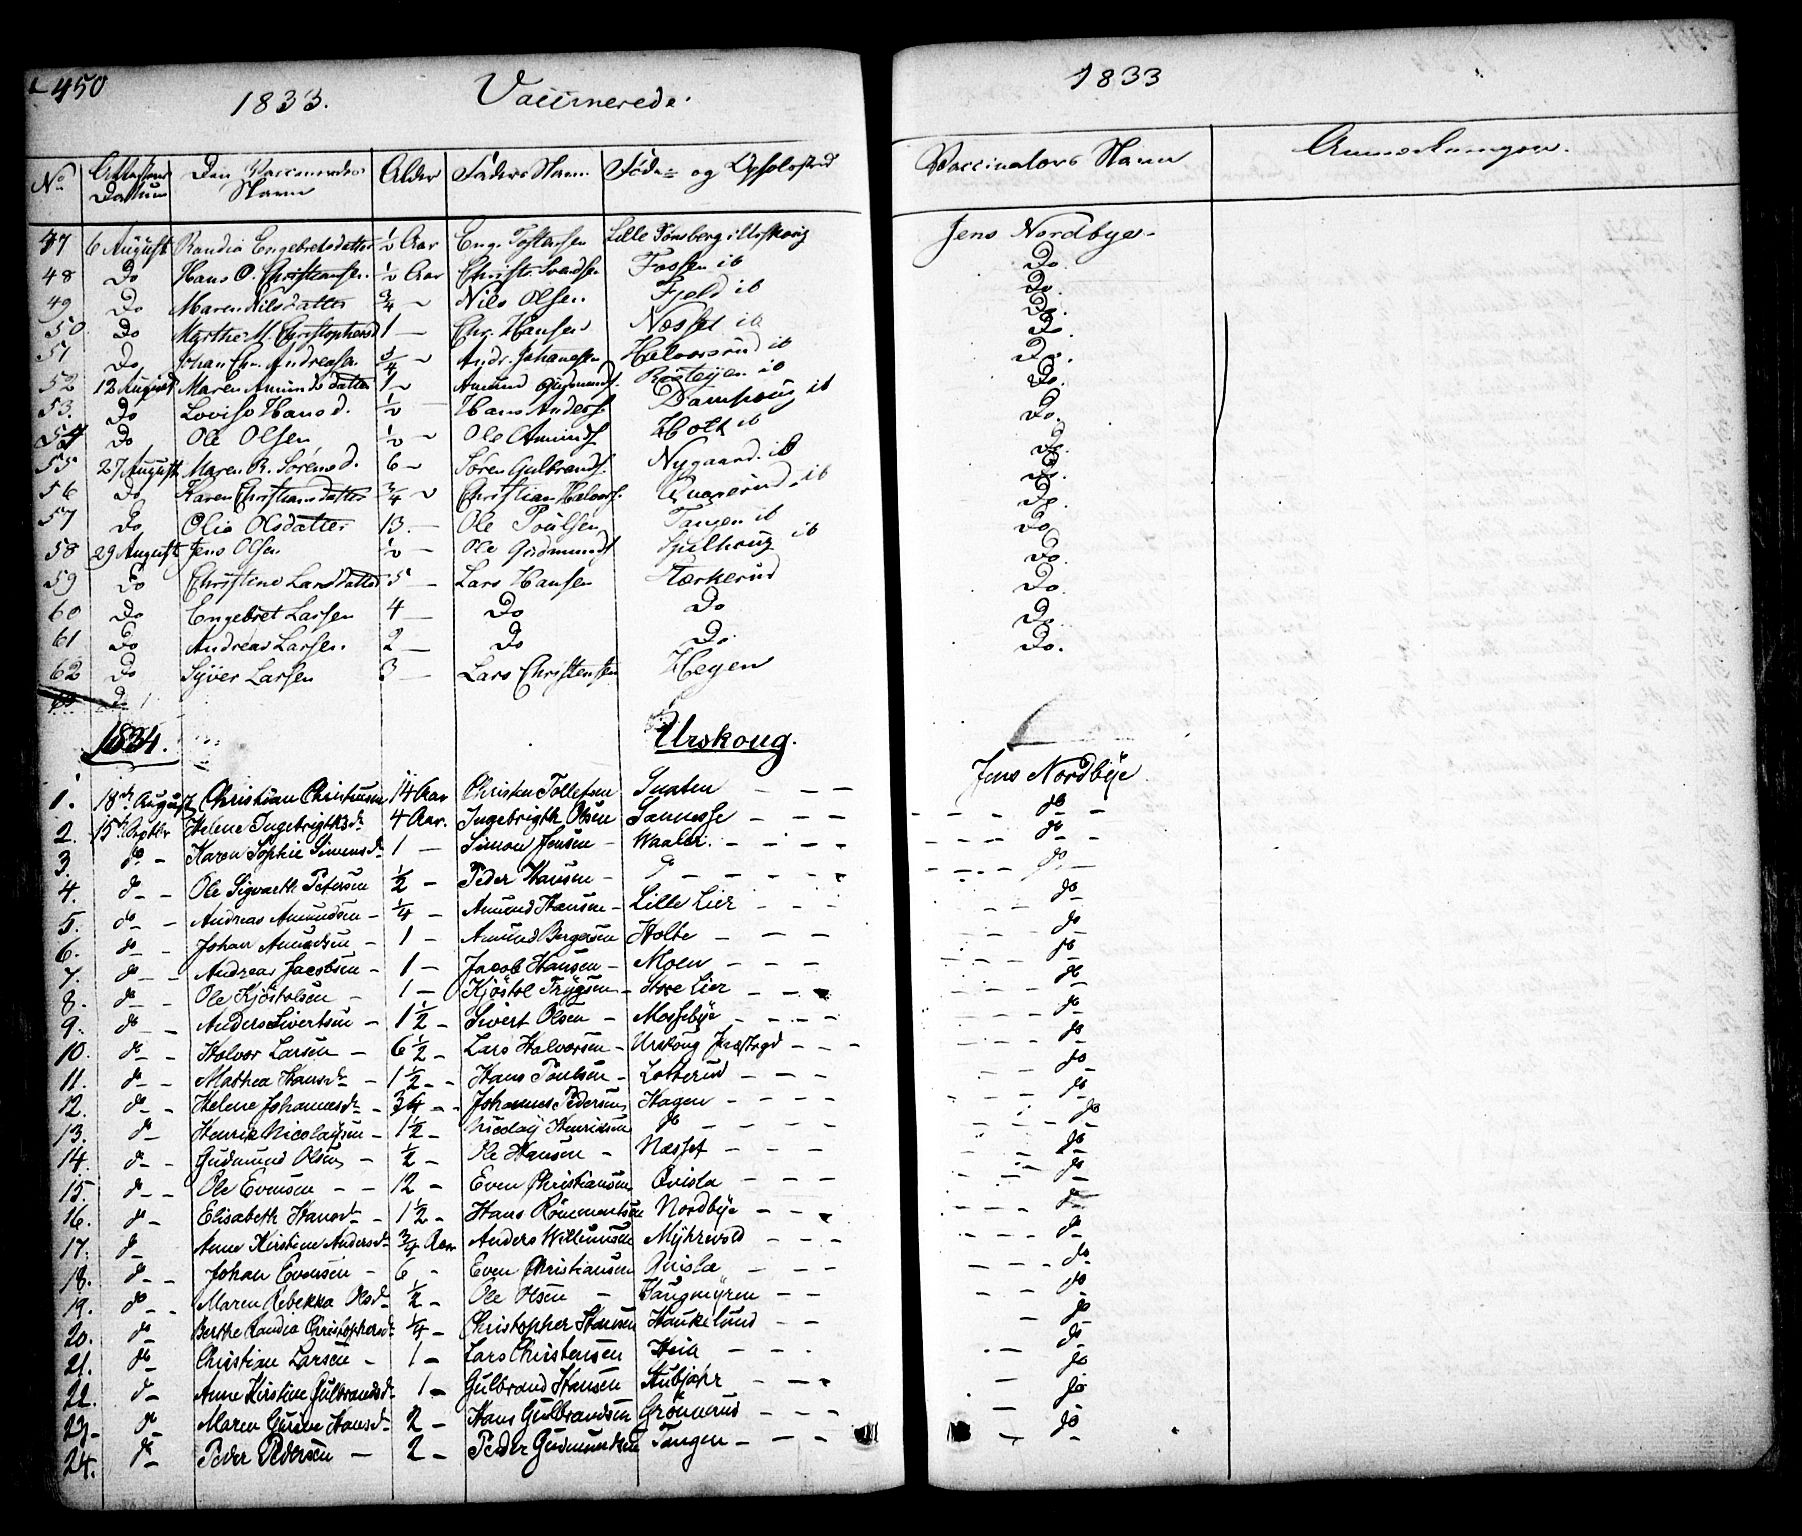 450
1833. Vaccinerede. 1833
No Attestens Datum Den Vaccineredes Navn Alder Faders Navn Føde- og Opholdssted Vaccinators Navn Anmærkninger.
47 6 August Randia Engebretsdatter 1/2 Aar Eng. Toftensen Lille Tønsberg i Urskoug Jens Nordbye-
48 Do Hans O. Christiansen. 1/2 Aar Christ. Svendsen Fossen ib Do.
49 Do Maren Nilsdatter 3/4 Nils Olsen. Fjeld ib Do.
50. Do Marthe M. Christophersd 1 — Chr. Hansen Næsset ib Do.
51 Do Johan Chr. Andreasen 3/4 Andr. Johannesen Halvorsrud ib Do.
52 12 August Maren Amundsdatter 1 Amund Gudmunds. ib Do.
53. Do Lovise Hansd. 1/2 — Hans Anders. ib Do.
54 Do Ole Olsen 1/2 Ole Amunds. Holt ib Do.
55 27 August Maren R. Sørensd. 6 Søren Gulbrands. Nygaard ib Do.
56 Do Karen Christiansdatter 3/4 Christian Halvors. ib Do.
57 Do Olia Olsdatter 13. — Ole Poulsen Tangen ib Do
58 29 August Jens Olsen 1/2 — Ole Gudmunds. ib Do
59 Do Christine Larsdatter 5 — Lars Hansen Stærkerud Do
60 Do Engebret Larsen 4 — Do Do Do.
61 Do Andreas Larsen. 2 — Do Do. Do.
62 Do Syver Larsen 3 — Lars Christensen Hegen
Do
1834. Urskoug.
1. 18de August Christian Christensen 14 Aar Christen Tollefsen — — — Jens Nordbye
2. 15de Septbr Helene Ingebrigtsd. 4 Aar. Ingebrigth Olsen Sannesse — — — do
3. do - Karen Sophie Simensd. 1 — Simon Jensen — Waaler. — — — do
4. do - Ole Sigvarth Petersen 1/2 — Peder Hansen — do — — — do
5. do - Andreas Amundsen — 1/4 — Amund Hansen — Lille Lier — — — do
6. do - Johan Amundsen — 1 — Amund Bergersen Holte — — — do
7. do - Andreas Jacobsen — 1 — Jacob Hansen — Moen — — — do
8. do - Ole Kjöstolsen — 1 — Kjöstol Trygsen — Store Lier — — do
9. do - Anders Sivertsen — 1 1/2 — Sivert Olsen — Mossebye — — — do
10. do - Halvor Larsen — 6 1/2 — Lars Halvorsen — Urskoug Præstegd — — — do
11. do - Mathea Hansd. — 1 1/2 — Hans Poulsen — Lotterud — — — do
12. do - Helene Johannesd. — 3/4 — Johannes Pedersen Hagen — — — do
13. do - Henrik Nicolaysen — 1 1/2 — Nicolay Henriksen do — — — do
14. do - Gudmund Olsen — 1/2 — Ole Hansen — Næsset — — — do
15. do - Ole Evensen — — 12 — Even Christiansen Qvisla — — — do
16. do - Elisabeth Hansd. — 1 1/2 — Hans Rommentsen Nordbye — — do
17. do - Anne Kirstine Andersd. 3/4 Aar Anders Willumsen Myhrvold — — do
18. do - Johan Evensen — 6 — Even Christiansen Qvisla — — — do
19. do - Maren Rebekka Olsd. 1/2 — Ole Olsen — Haugmyren — — do
20. do - Berthe Randia Christophersd. 1/4 — Christopher Hansen Haukelund — — do
21. do - Christian Larsen — 1 — Lars Christensen Heia — — do
22. do - Anne Kirstine Gulbrandsd. 1 — Gulbrand Hansen Aubjøhr — — do
23. do - Maren Gurine Hansd. 2 — Hans Gulbrandsen Grönnerud — — — do
24. do - Peder Pedersen — 2 — Peder Gudmundsen Tangen — — — do